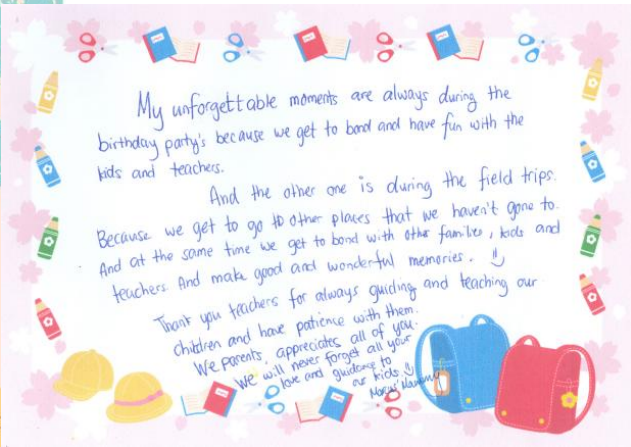 My unforgettable moments are always during the
birthday party's because we get to bond and have fun with the
kids and teachers.
And the other one is during the field trips.
Because we get to go to other places that we haven't gone to.
And at the same time we get to bond with other families, kids and
teachers. And make good and wonderful memories.
Thank you teachers for always guiding and teaching our
children and have patience with them.
We parents, appreciates all of you.
We will never forget all your
love and guidance to
our kids